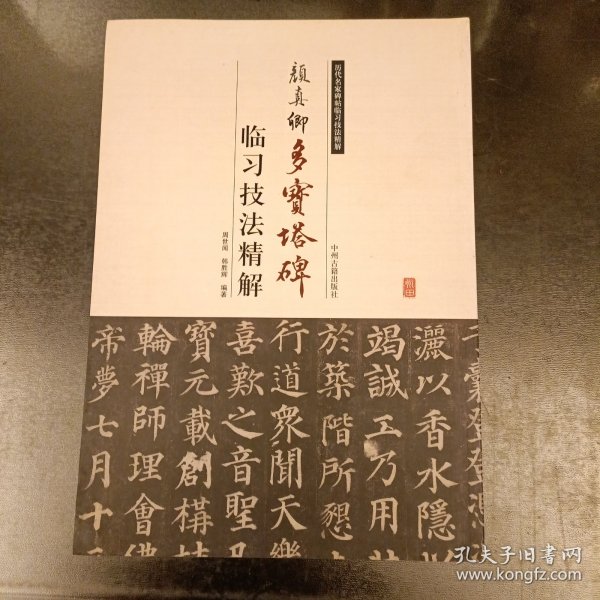 历代名家碑帖临习技法精解
颜真卿多寳塔碑
临习技法精解
周世闻 韩胜辉 编著
中州古籍出版社
灑以香水隱
竭誠工乃用
於築階所懇
行道衆聞天樂
喜歎之音聖
寳元載創構
輪禪師理會
帝夢七月十
孔夫子旧书网
www.kongfz.com